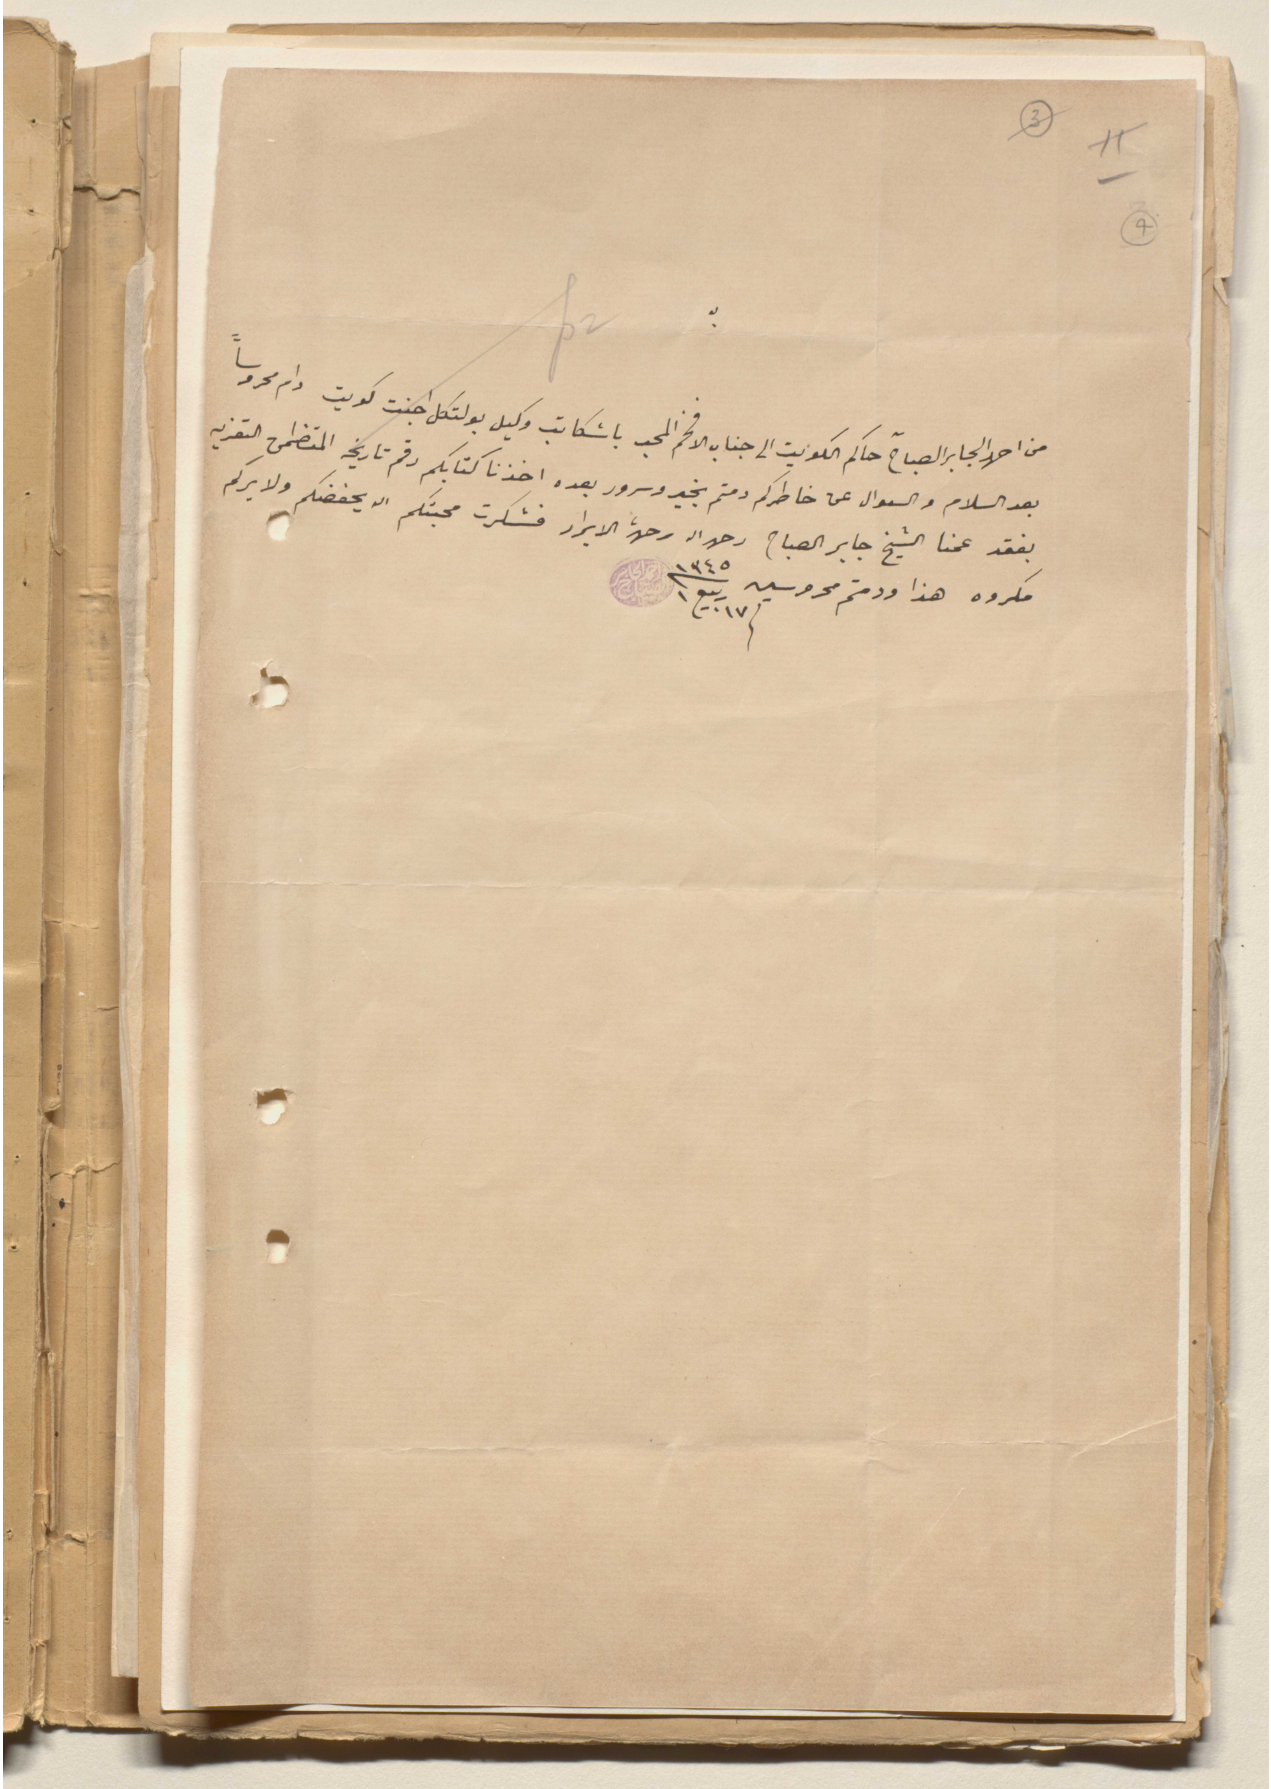 3
11
4
من احمد الجابر الصباح حاكم الكويت الى جناب الافخم المحب باشكاتب وكيل بولتكل اجنت كويت دام محروساً
بعد السلام والسوال عن خاطركم دمتم بخير وسرور بعده اخذنا كتابكم رقم تاريخه المتضمن التعزيه
بفقد عمنا الشيخ جابر الصباح رحمه الله رحمة الابرار فشكرت محبتكم الله يحفضكم ولا يريكم
مكروه هذا ودمتم محروسين
١٧ ربيع ١ ١٣٤٥